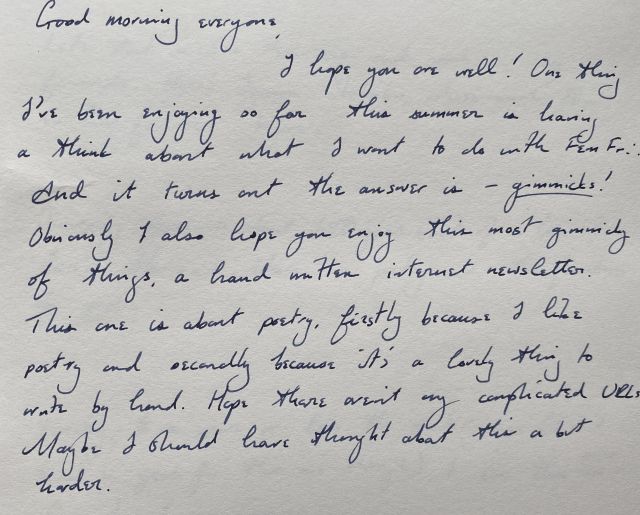 Good morning everyone,
I hope you are well! One thing
I've been enjoying so far this summer is having
a think about what I want to do with Fem Fri.
And it turns out the answer is – gimmicks!
Obviously I also hope you enjoy this most gimmicky
of things, a hand written internet newsletter.
This one is about poetry, firstly because I like
poetry and secondly because it's a lovely thing to
write by hand. Hope there aren't any complicated URLs
Maybe I should have thought about this a bit
harder.